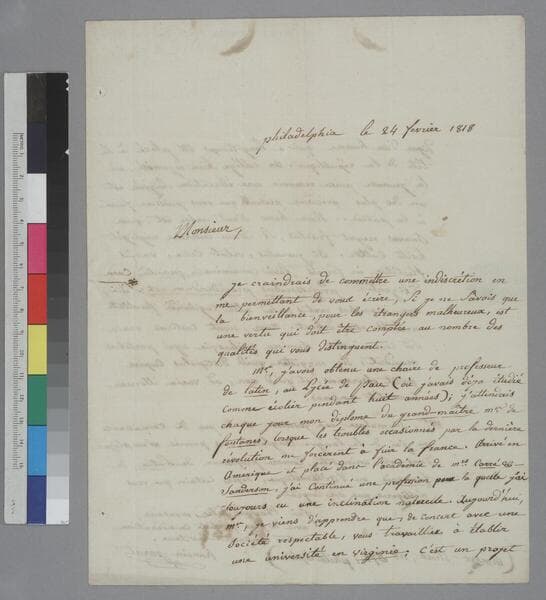 philadelphia le 24 fevrier 1818
Monsieur,
je craindrais de commettre une indiscrétion en
me permettant de vous écrire, si je ne savais que
la bienveillance, pour les étrangers malheureux, est
une vertu qui doit être comptée au nombre des
qualités qui vous distinguent.
Mr, j'avais obtenu une chaire de professeur
de latin, au Lycée de Pau (où j'avais déja étudié
comme écolier pendant huit années); j'attendais
chaque jour mon diplome du grand-maitre mr de
fontanes, lorsque les troubles occasionnés par la dernière
révolution me forcèrent à fuir la france. Arrivé en
Amérique et placé dans l'académie de mrs Carré &
Sanderson, j'ai continué une profession pour la quelle j'ai
toujours eu une inclination naturelle. Aujourd'hui,
mr, je viens d'apprendre que, de concert avec une
société respectable, vous travaillez à établir
une université en virginie; c'est un projet